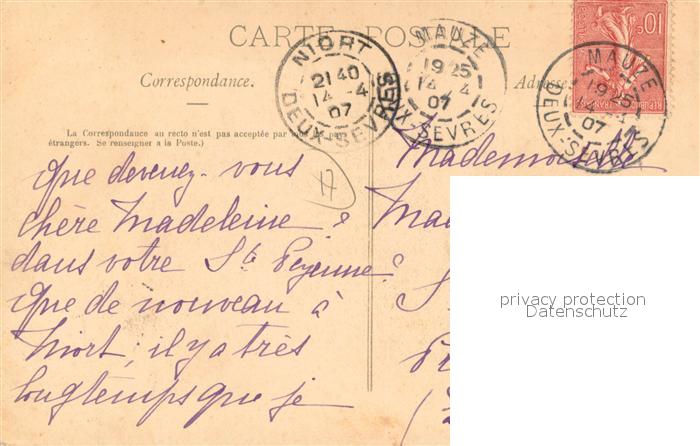 CARTE POSTALE
NIORT
21 40
14 - 4
07
DEUX-SEVRES
MAUZE
19 25
14 - 4
07
DEUX-SEVRES
MAUZE
19 25
14 - 4
07
DEUX-SEVRES
10c
Correspondance.
Adresse
La Correspondance au recto n'est pas acceptée par tous les pays
étrangers. Se renseigner a la Poste.)
17
Que devenez-vous
chère Madeleine ?
dans votre Ste Pezenne ?
Que de nouveau à
Niort ; il y a très
longtemps que je
Mademoiselle
Ma
S
(
privacy protection
Datenschutz